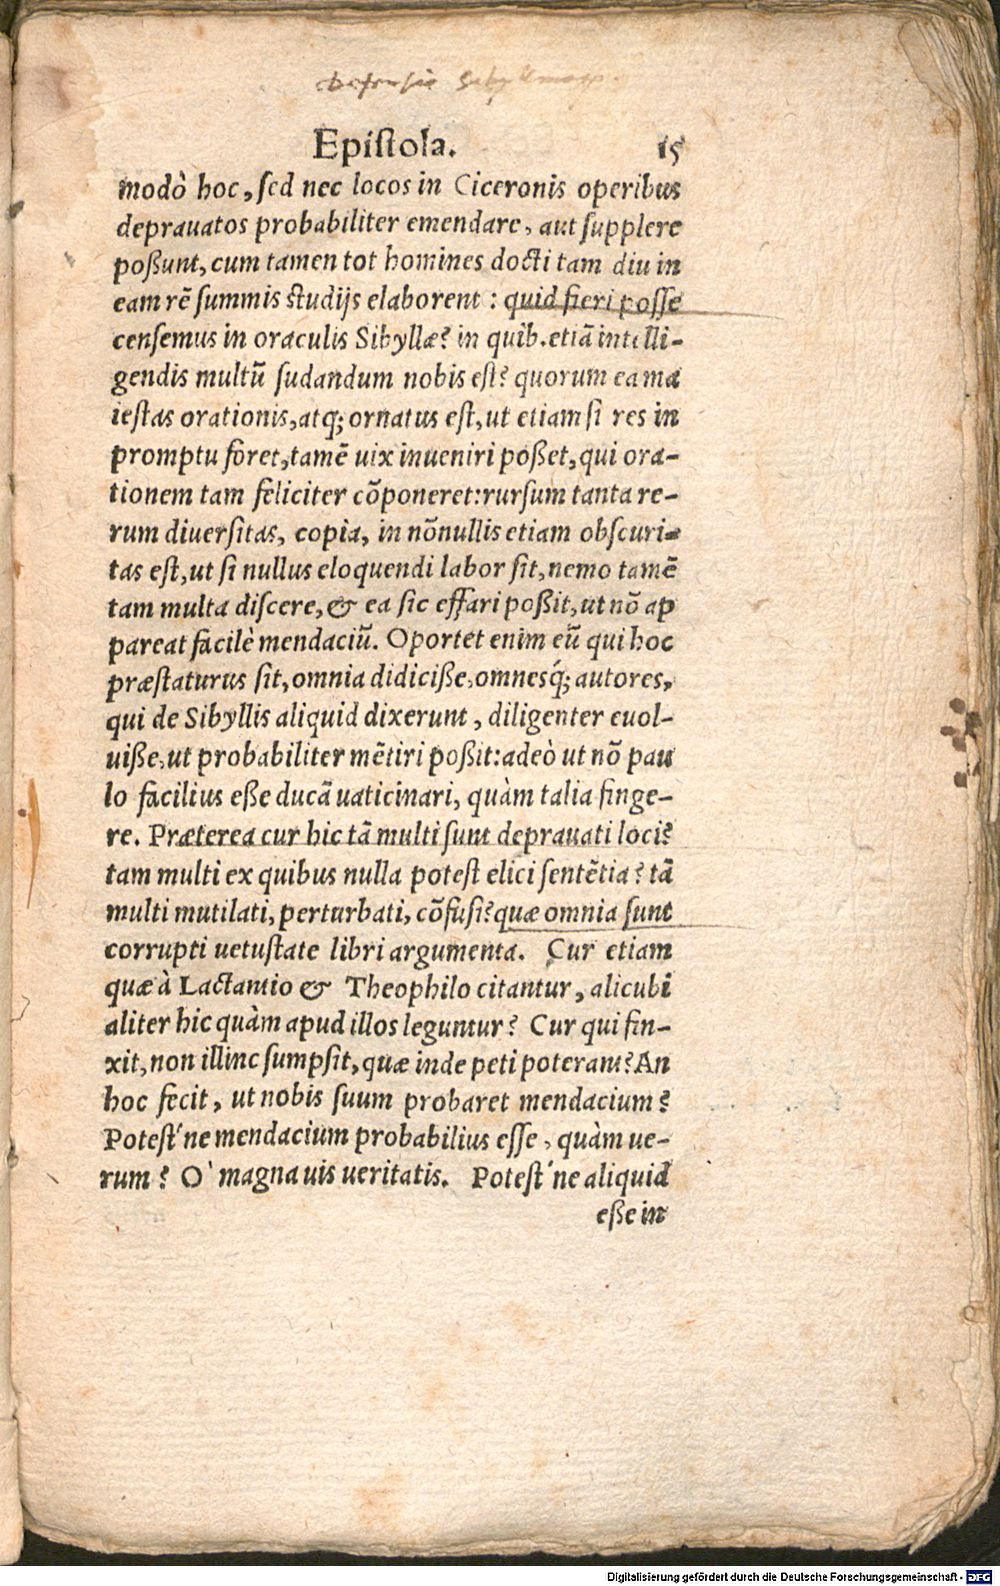 Defensio
Epiſtola. 15
modò hoc, ſed nec locos in Ciceronis operibus
deprauatos probabiliter emendare, aut ſupplere
poßunt, cum tamen tot homines docti tam diu in
eam rē ſummis ſtudijs elaborent : quid fieri poſſe
cenſemus in oraculis Sibyllæ? in quib. etiā intelli-
gendis multū ſudandum nobis eſt? quorum ea ma
ieſtas orationis, atq; ornatus eſt, ut etiam ſi res in
promptu foret, tamē uix inueniri poßet, qui ora-
tionem tam feliciter cōponeret: rurſum tanta re-
rum diuerſitas, copia, in nōnullis etiam obſcuri-
tas eſt, ut ſi nullus eloquendi labor ſit, nemo tamē
tam multa diſcere, & ea ſic effari poßit, ut nō ap
pareat facilè mendaciū. Oportet enim eū qui hoc
præſtaturus ſit, omnia didiciße, omnesq́; autores,
qui de Sibyllis aliquid dixerunt, diligenter euol-
uiße, ut probabiliter mētiri poßit: adeò ut nō pau
lo facilius eße ducā uaticinari, quàm talia finge-
re. Præterea cur hic tā multi ſunt deprauati loci?
tam multi ex quibus nulla poteſt elici ſentētia? tā
multi mutilati, perturbati, cōfuſi? quæ omnia ſunt
corrupti uetuſtate libri argumenta. Cur etiam
quæ à Lactantio & Theophilo citantur, alicubi
aliter hic quàm apud illos leguntur? Cur qui fin-
xit, non illinc ſumpſit, quæ inde peti poterant? An
hoc fecit, ut nobis ſuum probaret mendacium?
Poteſt'ne mendacium probabilius eſſe, quàm ue-
rum? O' magna uis ueritatis. Poteſt'ne aliquid
eße in
Digitalisierung gefördert durch die Deutsche Forschungsgemeinschaft - DFG